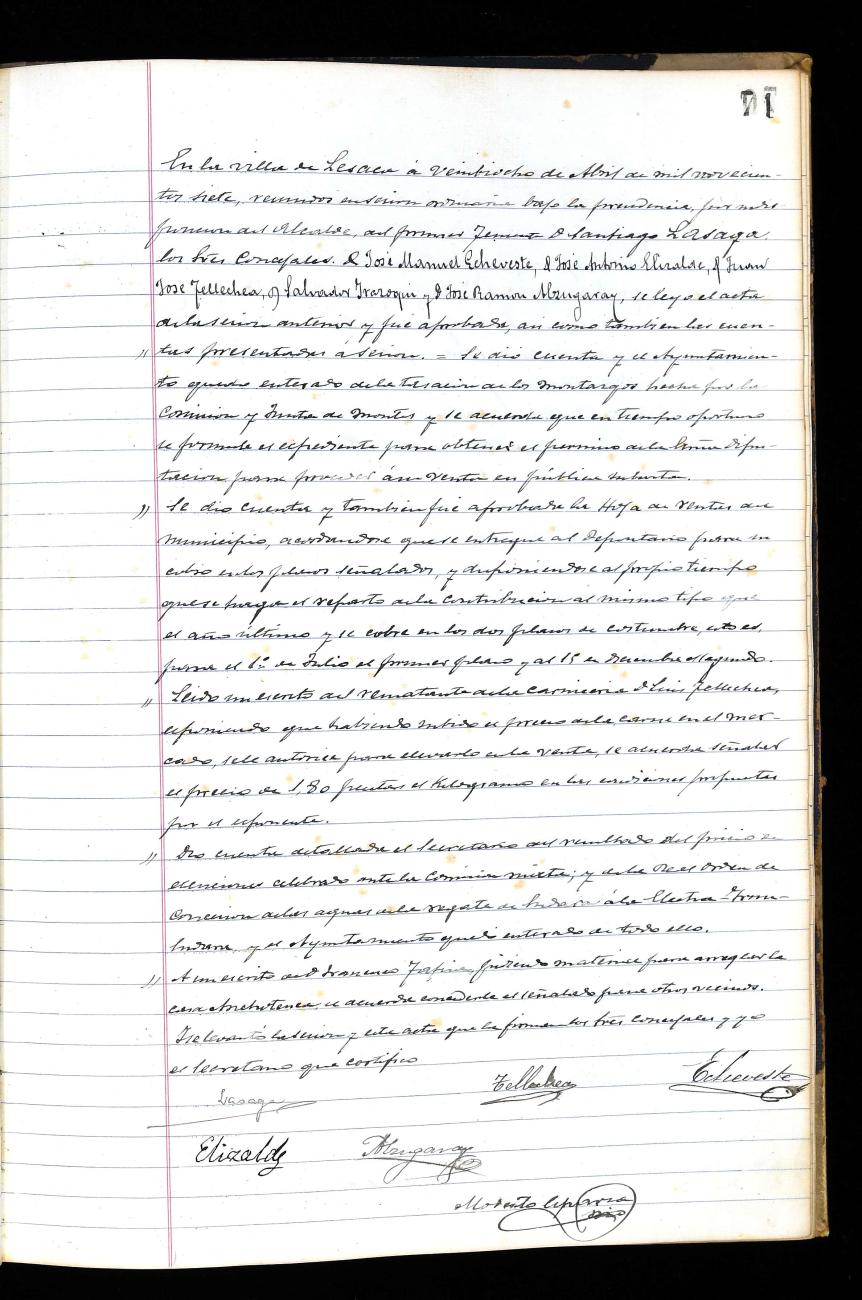 71
En la villa de Lesaca á Veintiocho de Abril de mil novecien-
tos siete, reunidos en sesion ordinaria bajo la presidencia, por indis-
posicion del Alcalde, del primer Teniente D Santiago Lasaga.
los Sres Concejales. D José Manuel Echeveste, D José Antonio Elizalde, D Juan
José Tellechea, D Salvador Irazoqui y D José Ramon Alzugaray, se leyo el acta
de la sesion anterior y fué aprobada, asi como tambien las cuen-
" tas presentadas á sesion. = Se dio cuenta y el Ayuntamien-
to quedo enterado de la tasacion de los montazgos hecha por la
Comision y Junta de Montes y se acuerda que en tiempo oportuno
se formule el espediente para obtener el permiso de la Excma Dipu-
tacion para proceder á su venta en pública subasta.
" Se dio cuenta y tambien fué aprobada la Hoja de ventas del
Municipio, acordandose que se entregue al Depositario para su
cobro en los plazos señalados, y disponiendose al propio tiempo
que se haga el reparto de la contribucion al mismo tipo que
el año último y se cobre en los dos plazos de costumbre, esto es,
para el 1º de Julio el primer plazo y al 15 de Diciembre el segundo.
" Leido un escrito del rematante de la carniceria D Luis Tellechea,
esponiendo que habiendo subido el precio de la carne en el mer-
cado, se le autorice para elevarlo en la venta, se acuerda señalar
el precio de 1,80 pesetas el Kilogramo en las condiciones propuestas
por el esponente.
" Dio cuenta detallada el Secretario del resultado del juicio de
esenciones celebrado ante la Comision mixta; y de la Real orden de
Concesion de las aguas de la regata de á la Electra
y el Ayuntamiento quedó enterado de todo ello.
" A un escrito de D Francisco pidiendo material para arreglar la
casa se acuerda concederle el señalado para otros vecinos.
Y se levantó la sesion y esta acta que la firman los Sres concejales y yo
el Secretario que certifico
Lasaga Tellechea Echeveste
Elizalde Alzugaray
Modesto